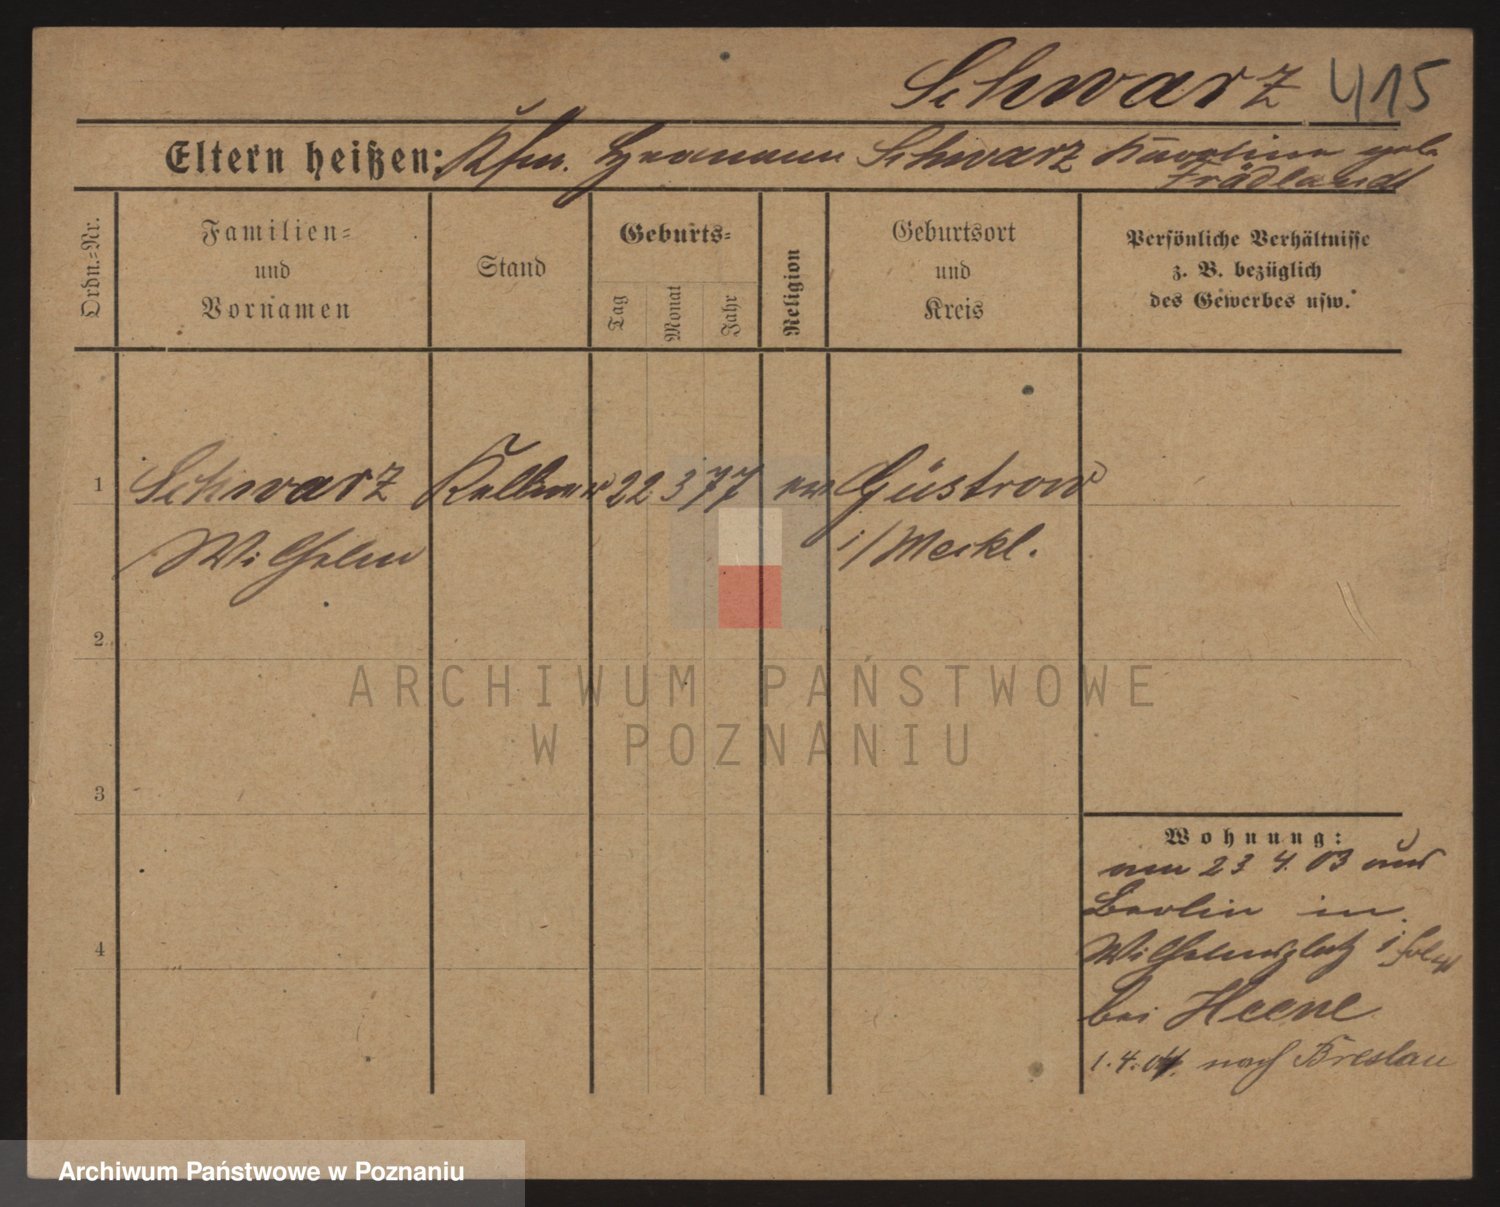 Schwarz 415
Eltern heißen: Kfm. Hermann Schwarz Karoline geb.
Frädland
Ordn.-Nr.
Familien-
und
Vornamen
Stand
Geburts-
Tag
Monat
Jahr
Religion
Geburtsort
und
Kreis
Persönliche Verhältnisse
z. B. bezüglich
des Gewerbes usw.
1 Schwarz Kellner 22 3 77 ev Güstrow
Wilhelm i/Meckl.
2
3
4
Wohnung:
am 23 4. 03 aus
Berlin in
Wilhelmsplatz
bei Heene
1.4.04. nach Breslau
ARCHIWUM PAŃSTWOWE
W POZNANIU
Archiwum Państwowe w Poznaniu